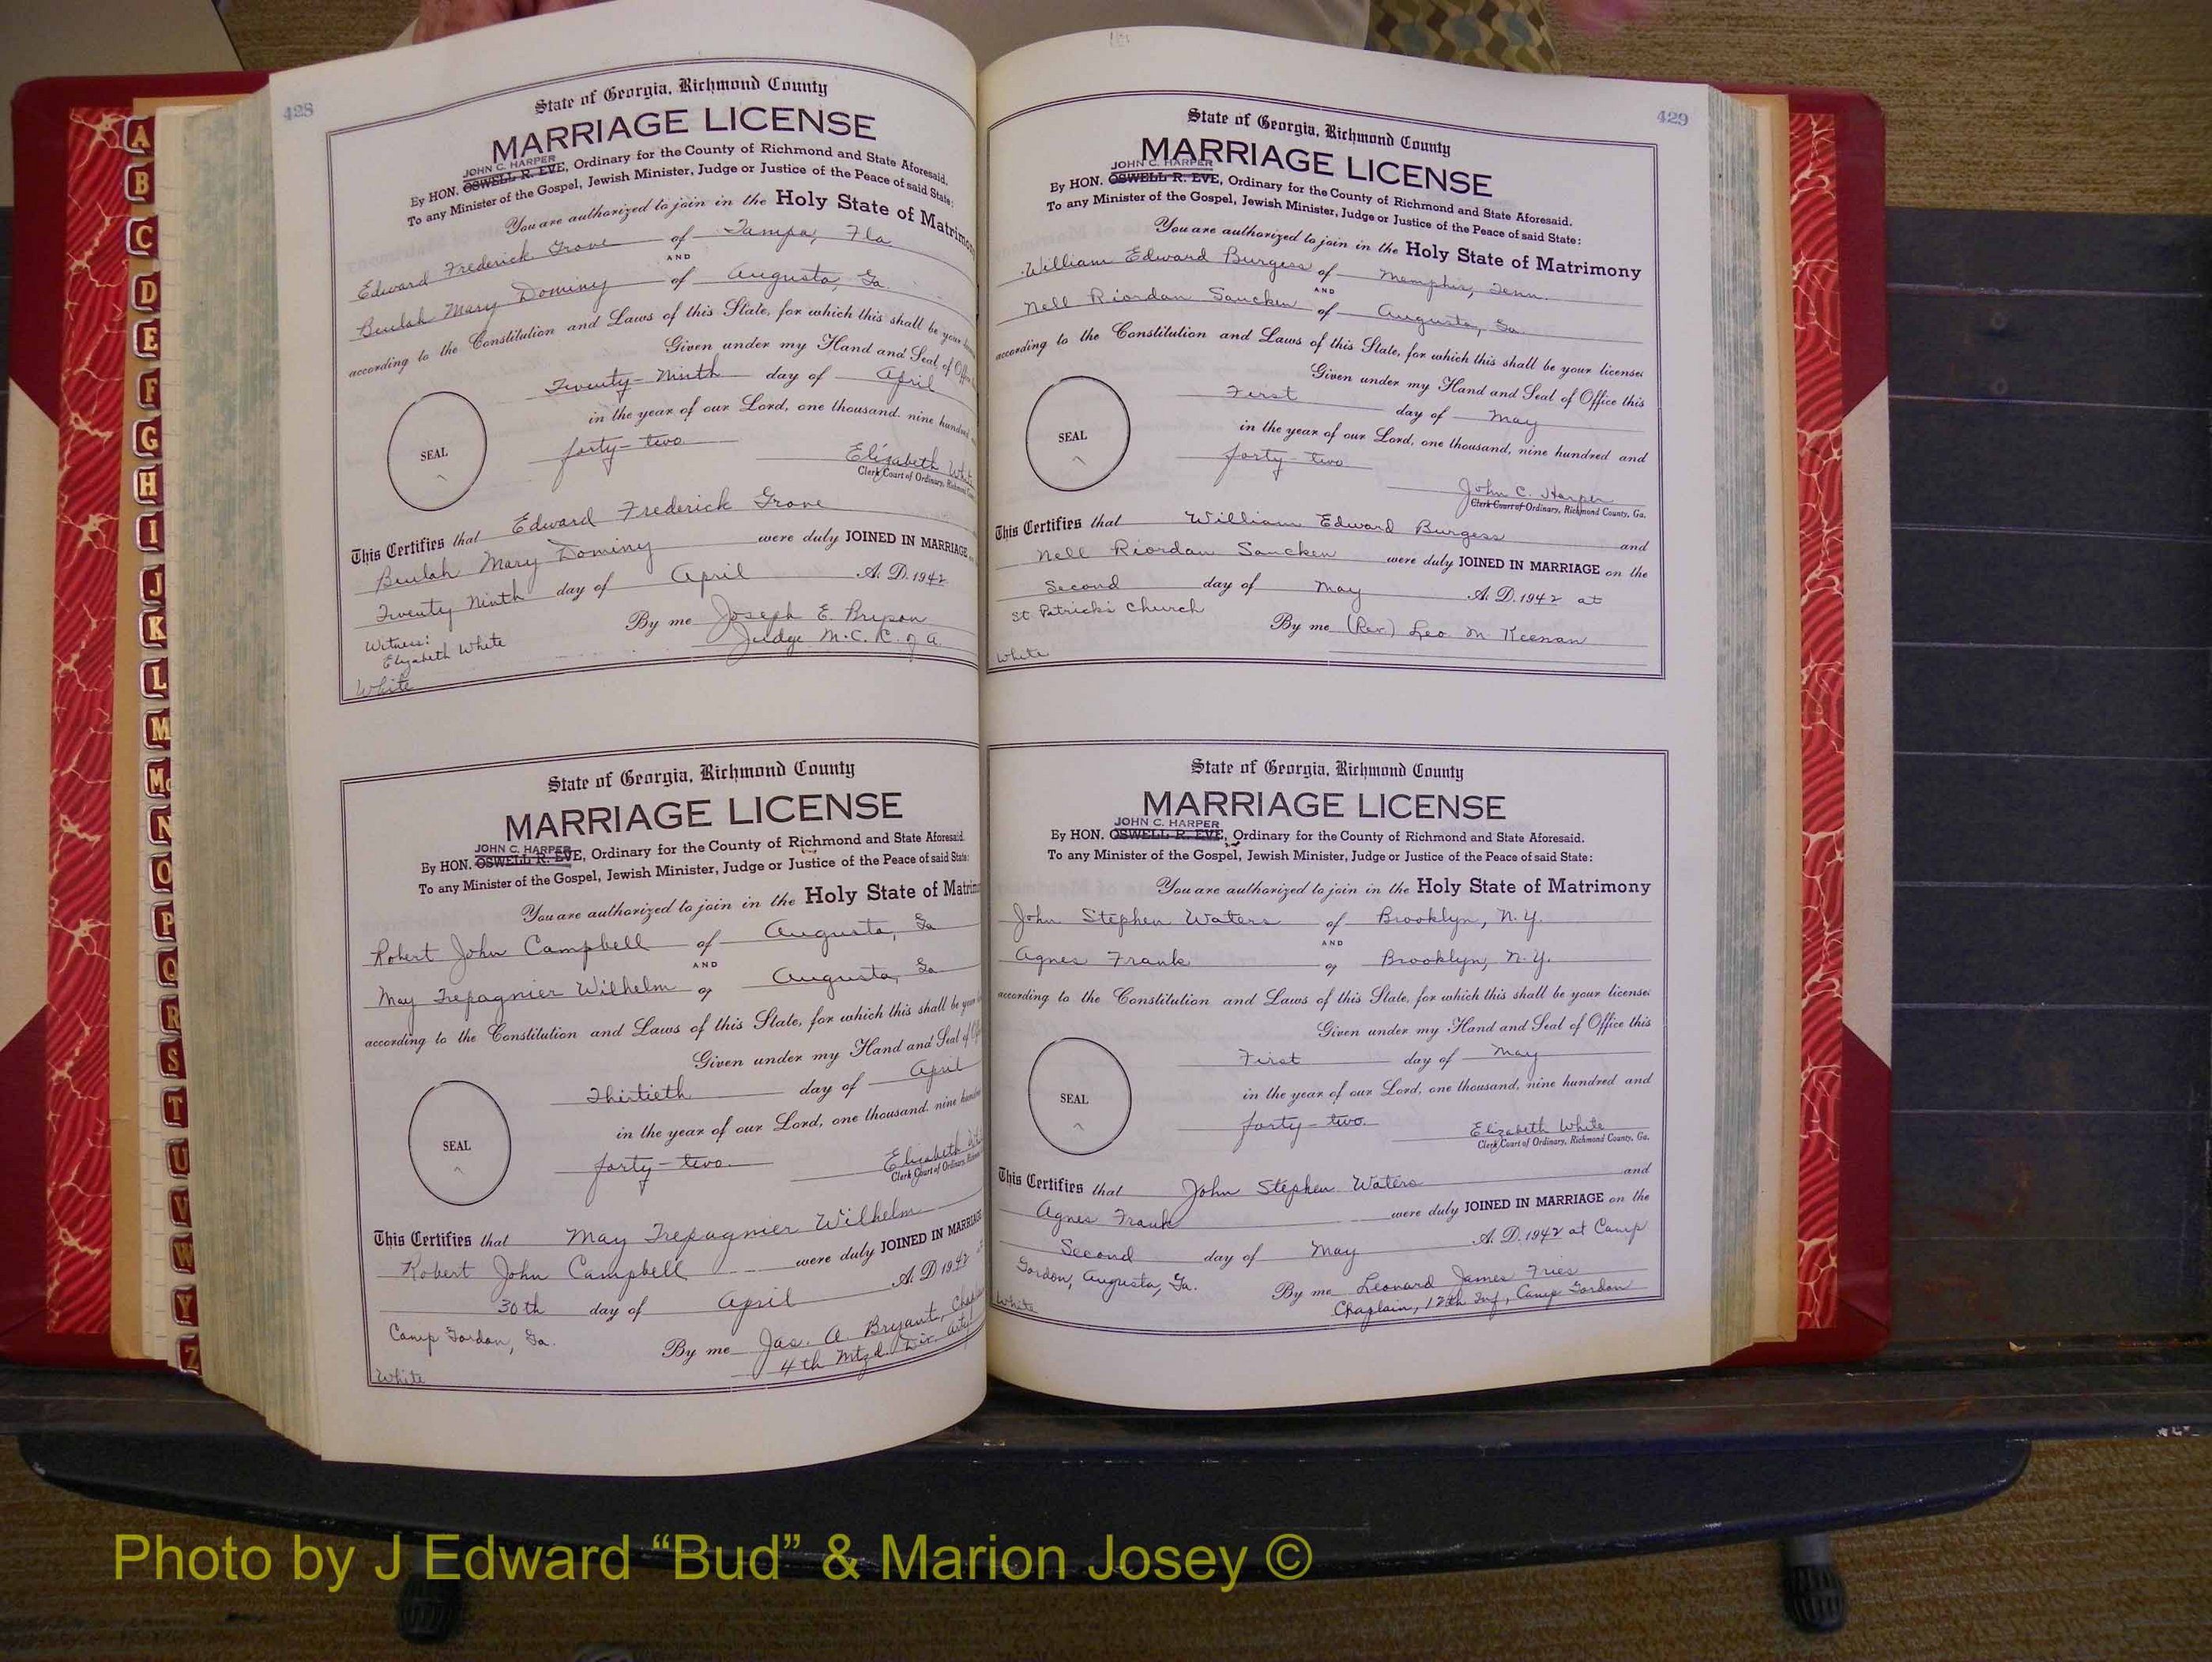 428
State of Georgia, Richmond County
MARRIAGE LICENSE
JOHN C. HARPER
By HON. OSWELL R. EVE, Ordinary for the County of Richmond and State Aforesaid.
To any Minister of the Gospel, Jewish Minister, Judge or Justice of the Peace of said State:
You are authorized to join in the Holy State of Matrimony
Edward Frederick Grove of Tampa, Fla
AND
Beulah Mary Dominy of Augusta, Ga
according to the Constitution and Laws of this State, for which this shall be your
Given under my Hand and Seal of Office
Twenty-Ninth day of April
in the year of our Lord, one thousand, nine hundred
forty-two
SEAL
Elizabeth White
Clerk Court of Ordinary, Richmond
This Certifies that Edward Frederick Grove
Beulah Mary Dominy were duly JOINED IN MARRIAGE
Twenty Ninth day of April A. D. 1942
By me Joseph E. Bryson
Judge M. C. R. of A.
Witness:
Elizabeth White
White
State of Georgia, Richmond County
MARRIAGE LICENSE
JOHN C. HARPER
By HON. OSWELL R. EVE, Ordinary for the County of Richmond and State Aforesaid.
To any Minister of the Gospel, Jewish Minister, Judge or Justice of the Peace of said State:
You are authorized to join in the Holy State of Matrim
Robert John Campbell of Augusta, Ga
AND
May Trepagnier Wilhelm of Augusta, Ga
according to the Constitution and Laws of this State, for which this shall be your
Given under my Hand and Seal of
Thirtieth day of April
in the year of our Lord, one thousand, nine hundred
forty-two.
SEAL
Elizabeth
Clerk Court of Ordinary,
This Certifies that May Trepagnier Wilhelm
Robert John Campbell were duly JOINED IN MARRIAGE
30th day of April A. D. 1942
Camp Gordon, Ga.
By me Jas. A. Bryant,
4th Mtzd. Div. Arty
White
429
State of Georgia, Richmond County
MARRIAGE LICENSE
JOHN C. HARPER
By HON. OSWELL R. EVE, Ordinary for the County of Richmond and State Aforesaid.
To any Minister of the Gospel, Jewish Minister, Judge or Justice of the Peace of said State:
You are authorized to join in the Holy State of Matrimony
William Edward Burgess of Memphis, Tenn.
AND
Nell Riordan Sancken of Augusta, Ga
according to the Constitution and Laws of this State, for which this shall be your license:
Given under my Hand and Seal of Office this
First day of May
in the year of our Lord, one thousand, nine hundred and
forty-two
SEAL
John C. Harper
Clerk Court of Ordinary, Richmond County, Ga.
This Certifies that William Edward Burgess and
Nell Riordan Sancken were duly JOINED IN MARRIAGE on the
Second day of May A. D. 1942 at
St Patrick's Church
By me (Rev) Leo M Keenan
White
State of Georgia, Richmond County
MARRIAGE LICENSE
JOHN C. HARPER
By HON. OSWELL R. EVE, Ordinary for the County of Richmond and State Aforesaid.
To any Minister of the Gospel, Jewish Minister, Judge or Justice of the Peace of said State:
You are authorized to join in the Holy State of Matrimony
John Stephen Waters of Brooklyn, N.Y.
AND
Agnes Frank of Brooklyn, N.Y.
according to the Constitution and Laws of this State, for which this shall be your license:
Given under my Hand and Seal of Office this
First day of May
in the year of our Lord, one thousand, nine hundred and
forty-two.
SEAL
Elizabeth White
Clerk Court of Ordinary, Richmond County, Ga.
This Certifies that John Stephen Waters and
Agnes Frank were duly JOINED IN MARRIAGE on the
Second day of May A. D. 1942 at Camp
Gordon, Augusta, Ga.
By me Leonard James Fries
Chaplain, 12th Inf, Camp Gordon
White
A
B
C
D
E
F
G
H
I
J
K
L
M
Mc
N
O
P
Q
R
S
T
U
V
W
Y
Z
Photo by J Edward “Bud” & Marion Josey ©